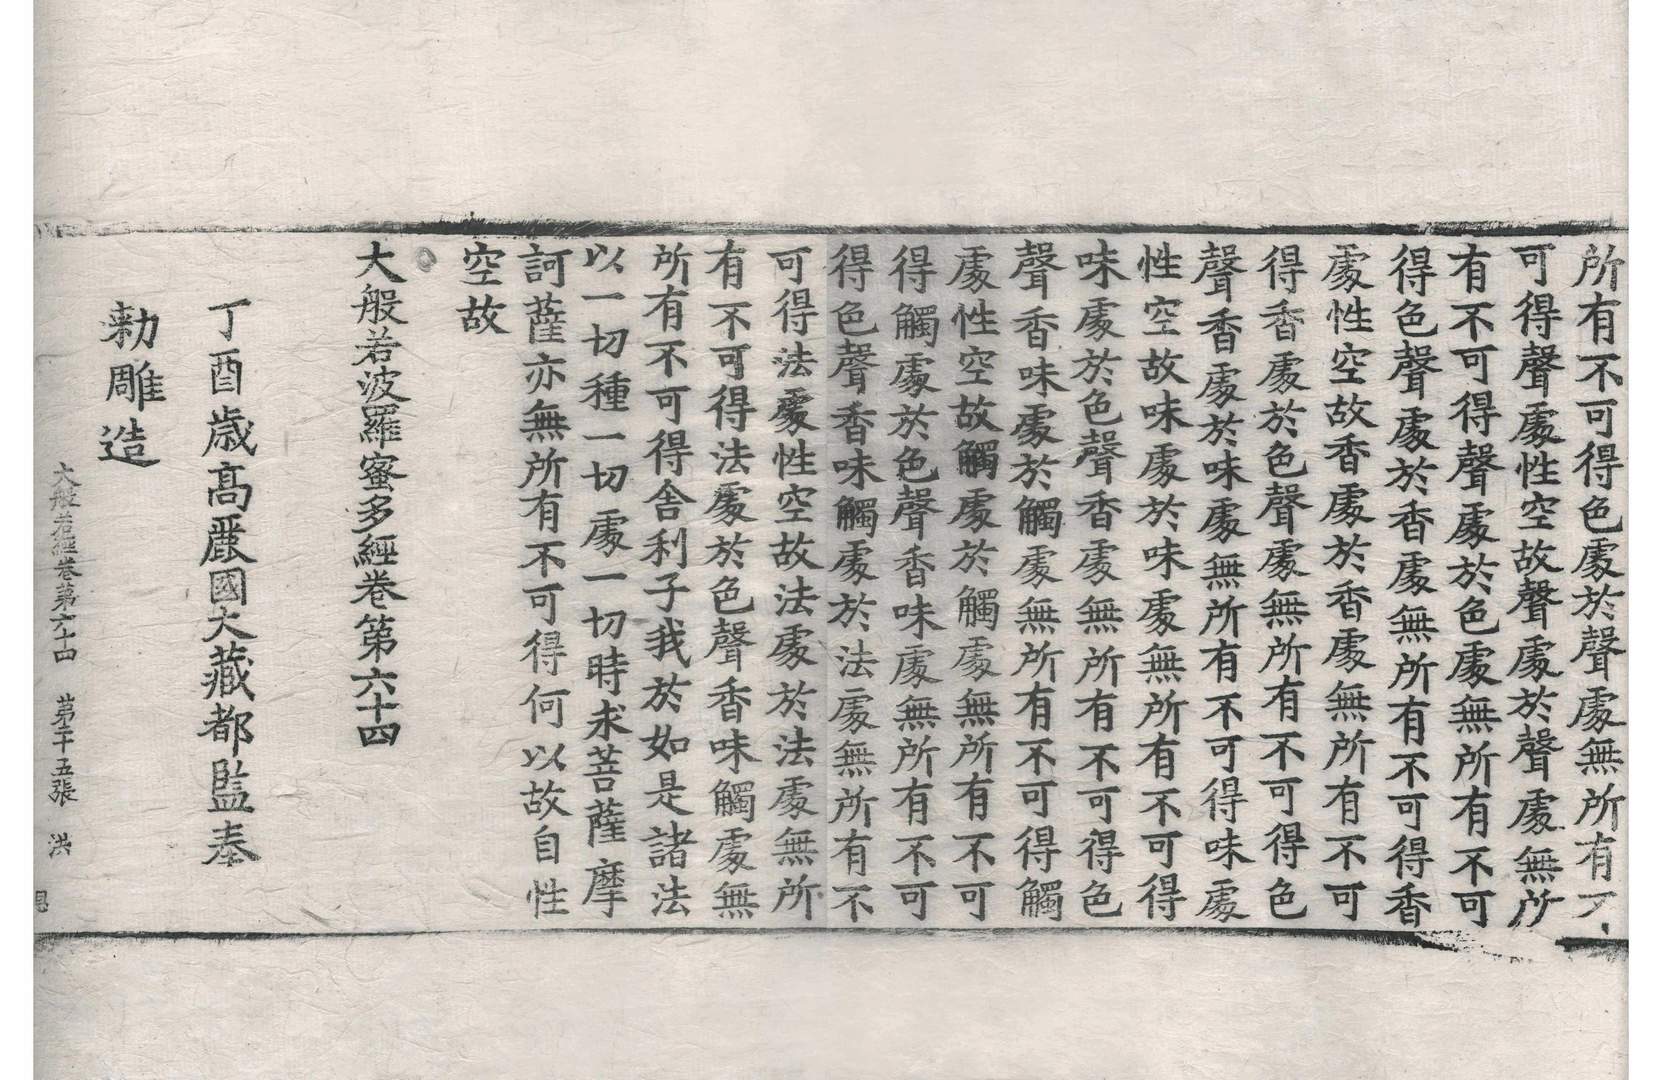 所有不可得色處於聲處無所有不
可得聲處性空故聲處於聲處無所
有不可得聲處於色處無所有不可
得色聲處於香處無所有不可得香
處性空故香處於香處無所有不可
得香處於色聲處無所有不可得色
聲香處於味處無所有不可得味處
性空故味處於味處無所有不可得
味處於色聲香處無所有不可得色
聲香味處於觸處無所有不可得觸
處性空故觸處於觸處無所有不可
得觸處於色聲香味處無所有不可
得色聲香味觸處於法處無所有不
可得法處性空故法處於法處無所
有不可得法處於色聲香味觸處無
所有不可得舍利子我於如是諸法
以一切種一切處一切時求菩薩摩
訶薩亦無所有不可得何以故自性
空故
大般若波羅蜜多經卷第六十四
丁酉歳高麗國大藏都監奉
勅雕造
大般若經卷第六十四 第二十五張 洪